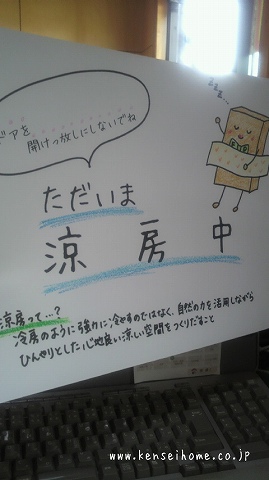 ドアを
開けっ放しにしないでね
zzz...
ただいま
涼房中
涼房って…?
冷房のように強力に冷やすのではなく、自然の力を活用しながら
ひんやりとした心地良い涼しい空間をつくりだすこと
www.kenseihome.co.jp